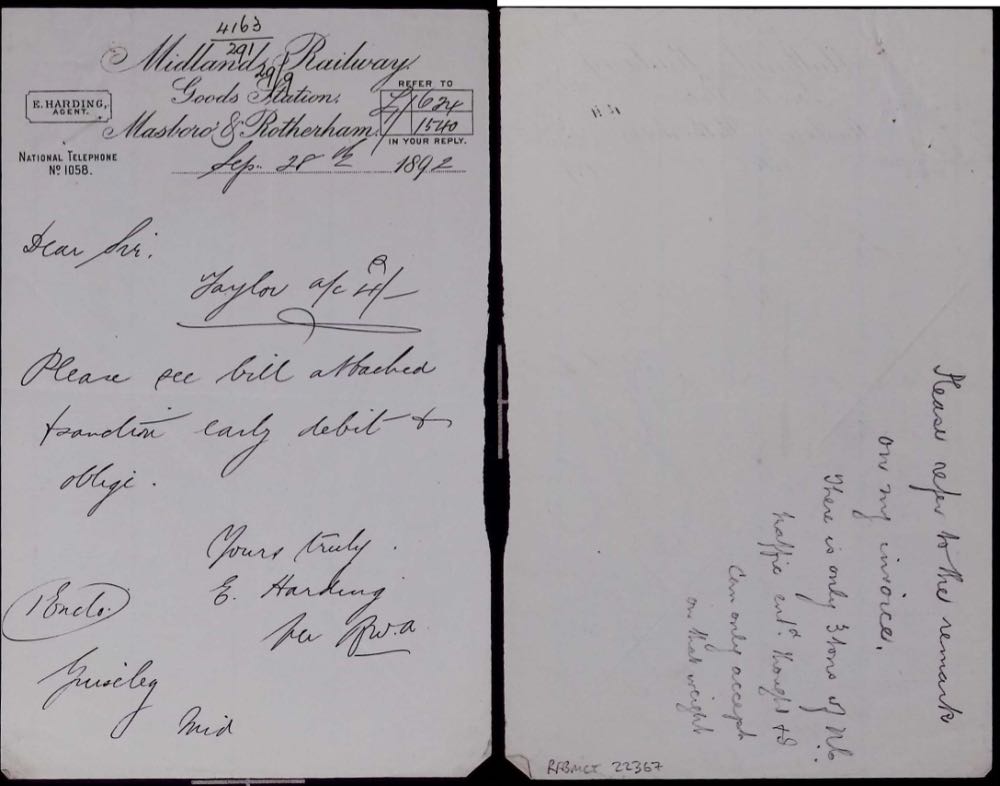 4163
291
Midland Railway.
2919
Goods Station.
E. HARDING,
AGENT.
Masboro' & Rotherham.
REFER TO
624
1540
IN YOUR REPLY.
NATIONAL TELEPHONE
No 1058.
Sep. 28th 1892
Dear Sir.
Taylor a/c 4/-
Please see bill attached
& sanction early debit &
oblige.
Yours truly.
E. Harding
per
1 Enclo.
Guiseley
Mid
Please refer to the remark
on my invoice.
There is only 3 tons of
traffic
Can only accept
on that weight
RFBMCT 22367